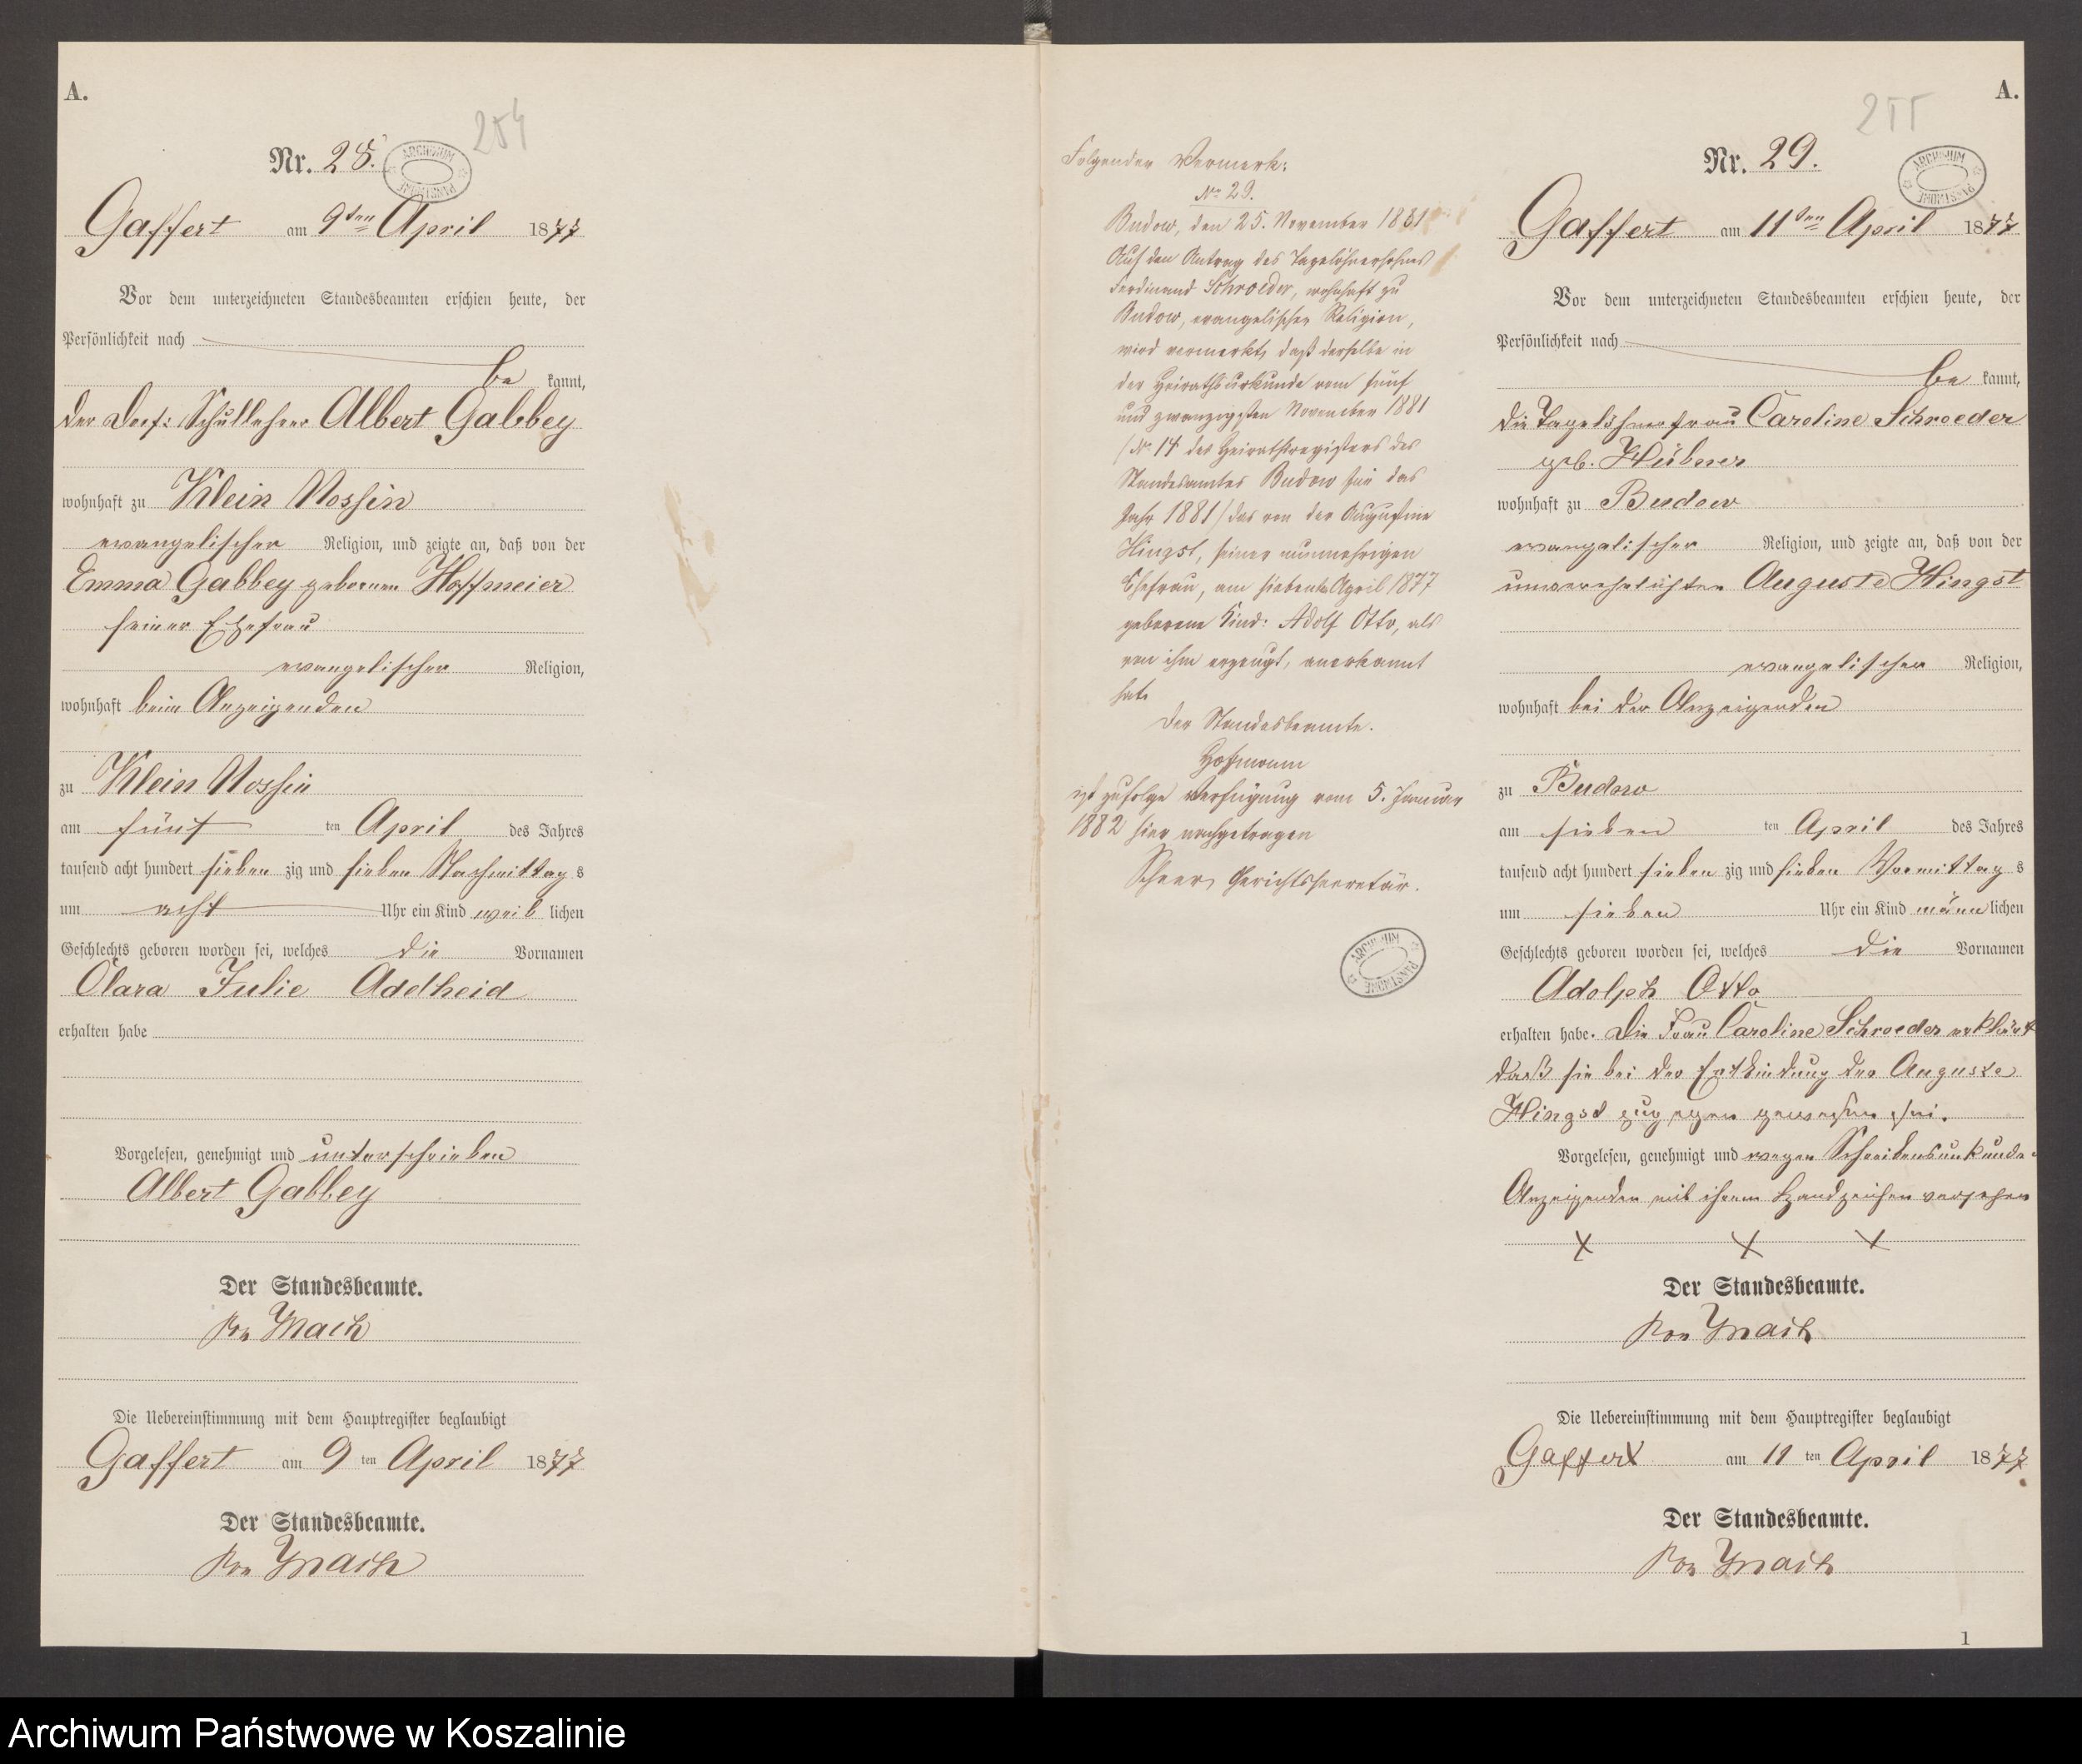 A.
254
Nr. 28.
ARCHIWUM PAŃSTWOWE
Gaffert am 9ten April 1877
Vor dem unterzeichneten Standesbeamten erschien heute, der
Persönlichkeit nach
be kannt,
der Dorf: Schullehrer Albert Gabbey
wohnhaft zu Klein Nossin
evangelischer Religion, und zeigte an, daß von der
Emma Gabbey geborenen Hoffmeier
seiner Ehefrau
evangelischer Religion,
wohnhaft beim Anzeigenden
zu Klein Nossin
am fünf ten April des Jahres
tausend acht hundert sieben zig und sieben Nachmittag s
um acht Uhr ein Kind weib lichen
Geschlechts geboren worden sei, welches die Vornamen
Clara Julie Adelheid
erhalten habe
Vorgelesen, genehmigt und unterschrieben
Albert Gabbey
Der Standesbeamte.
von Mach
Die Uebereinstimmung mit dem Hauptregister beglaubigt
Gaffert am 9 ten April 1877
Der Standesbeamte.
von Mach
Folgender Vermerk:
No 29.
Budow, den 25. November 1881
Auf den Antrag des Tagelöhnersohnes
Ferdinand Schroeder, wohnhaft zu
Budow, evangelischer Religion,
wird vermerkt, daß derselbe in
der Heirathsurkunde vom fünf
und zwanzigsten November 1881
(No 14 des Heirathsregisters des
Standesamtes Budow für das
Jahr 1881) das von der Augustine
Hingst, seiner nunmehrigen
Ehefrau, am siebenten April 1877
geborene Kind: Adolf Otto, als
von ihm erzeugt, anerkannt
hat.
Der Standesbeamte.
Hofmann
ist zufolge Verfügung vom 5. Januar
1882 hier nachgetragen
Gerichtssecretär.
ARCHIWUM PAŃSTWOWE
A.
255
Nr. 29.
ARCHIWUM PAŃSTWOWE
Gaffert am 11ten April 1877
Vor dem unterzeichneten Standesbeamten erschien heute, der
Persönlichkeit nach
be kannt,
die Tagelöhnerfrau Caroline Schroeder
geb. Hübner
wohnhaft zu Budow
evangelischer Religion, und zeigte an, daß von der
unverehelichten Auguste Hingst
evangelischer Religion,
wohnhaft bei der Anzeigenden
zu Budow
am sieben ten April des Jahres
tausend acht hundert sieben zig und sieben Vormittag s
um sieben Uhr ein Kind männ lichen
Geschlechts geboren worden sei, welches die Vornamen
Adolph Otto
erhalten habe. Die Frau Caroline Schroeder erklärt
daß sie bei der Entbindung der Auguste
Hingst zugegen gewesen sei.
Vorgelesen, genehmigt und wegen Schreibensunkunde
Anzeigenden mit ihrem Handzeichen versehen
x x x
Der Standesbeamte.
von Mach
Die Uebereinstimmung mit dem Hauptregister beglaubigt
Gaffert am 11 ten April 1877
Der Standesbeamte.
von Mach
1
Archiwum Państwowe w Koszalinie